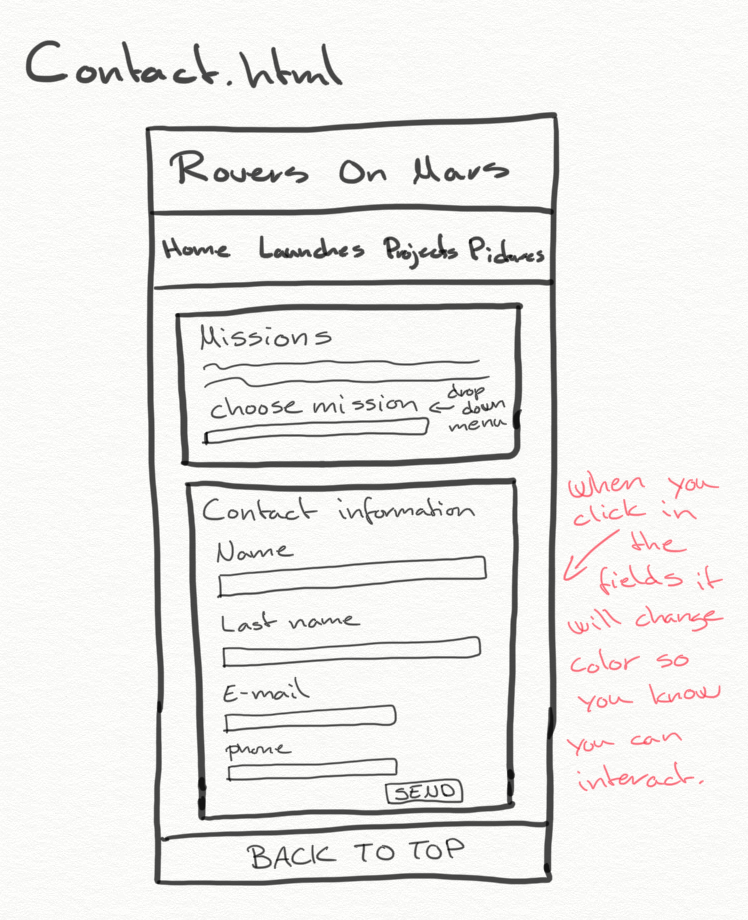 Contact.html
Rovers On Mars
Home Launches Projects Pictures
Missions
choose mission
drop
down
menu
Contact information
Name
Last name
E-mail
phone
SEND
BACK TO TOP
when you
click in
the
fields it
will change
color so
you know
you can
interact.